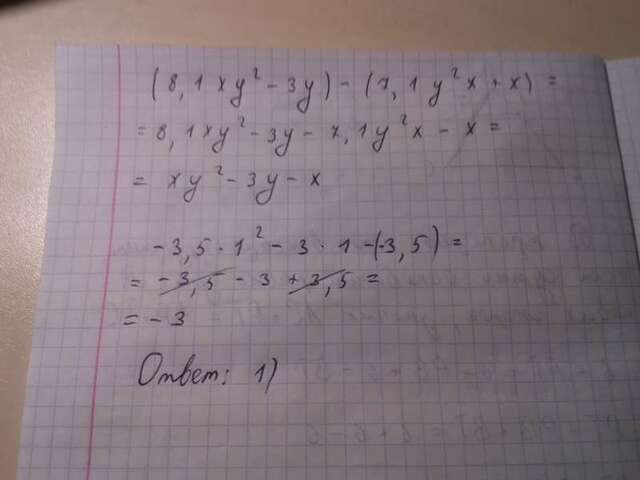 (8,1xy² - 3y) - (7,1y²x + x) =
= 8,1xy² - 3y - 7,1y²x - x =
= xy² - 3y - x
-3,5 · 1² - 3 · 1 - (-3,5) =
= -3,5 - 3 + 3,5 =
= -3
Ответ: 1)